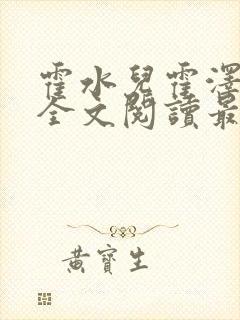 霍水兒霍澤
全文閱讀最
黃寶生